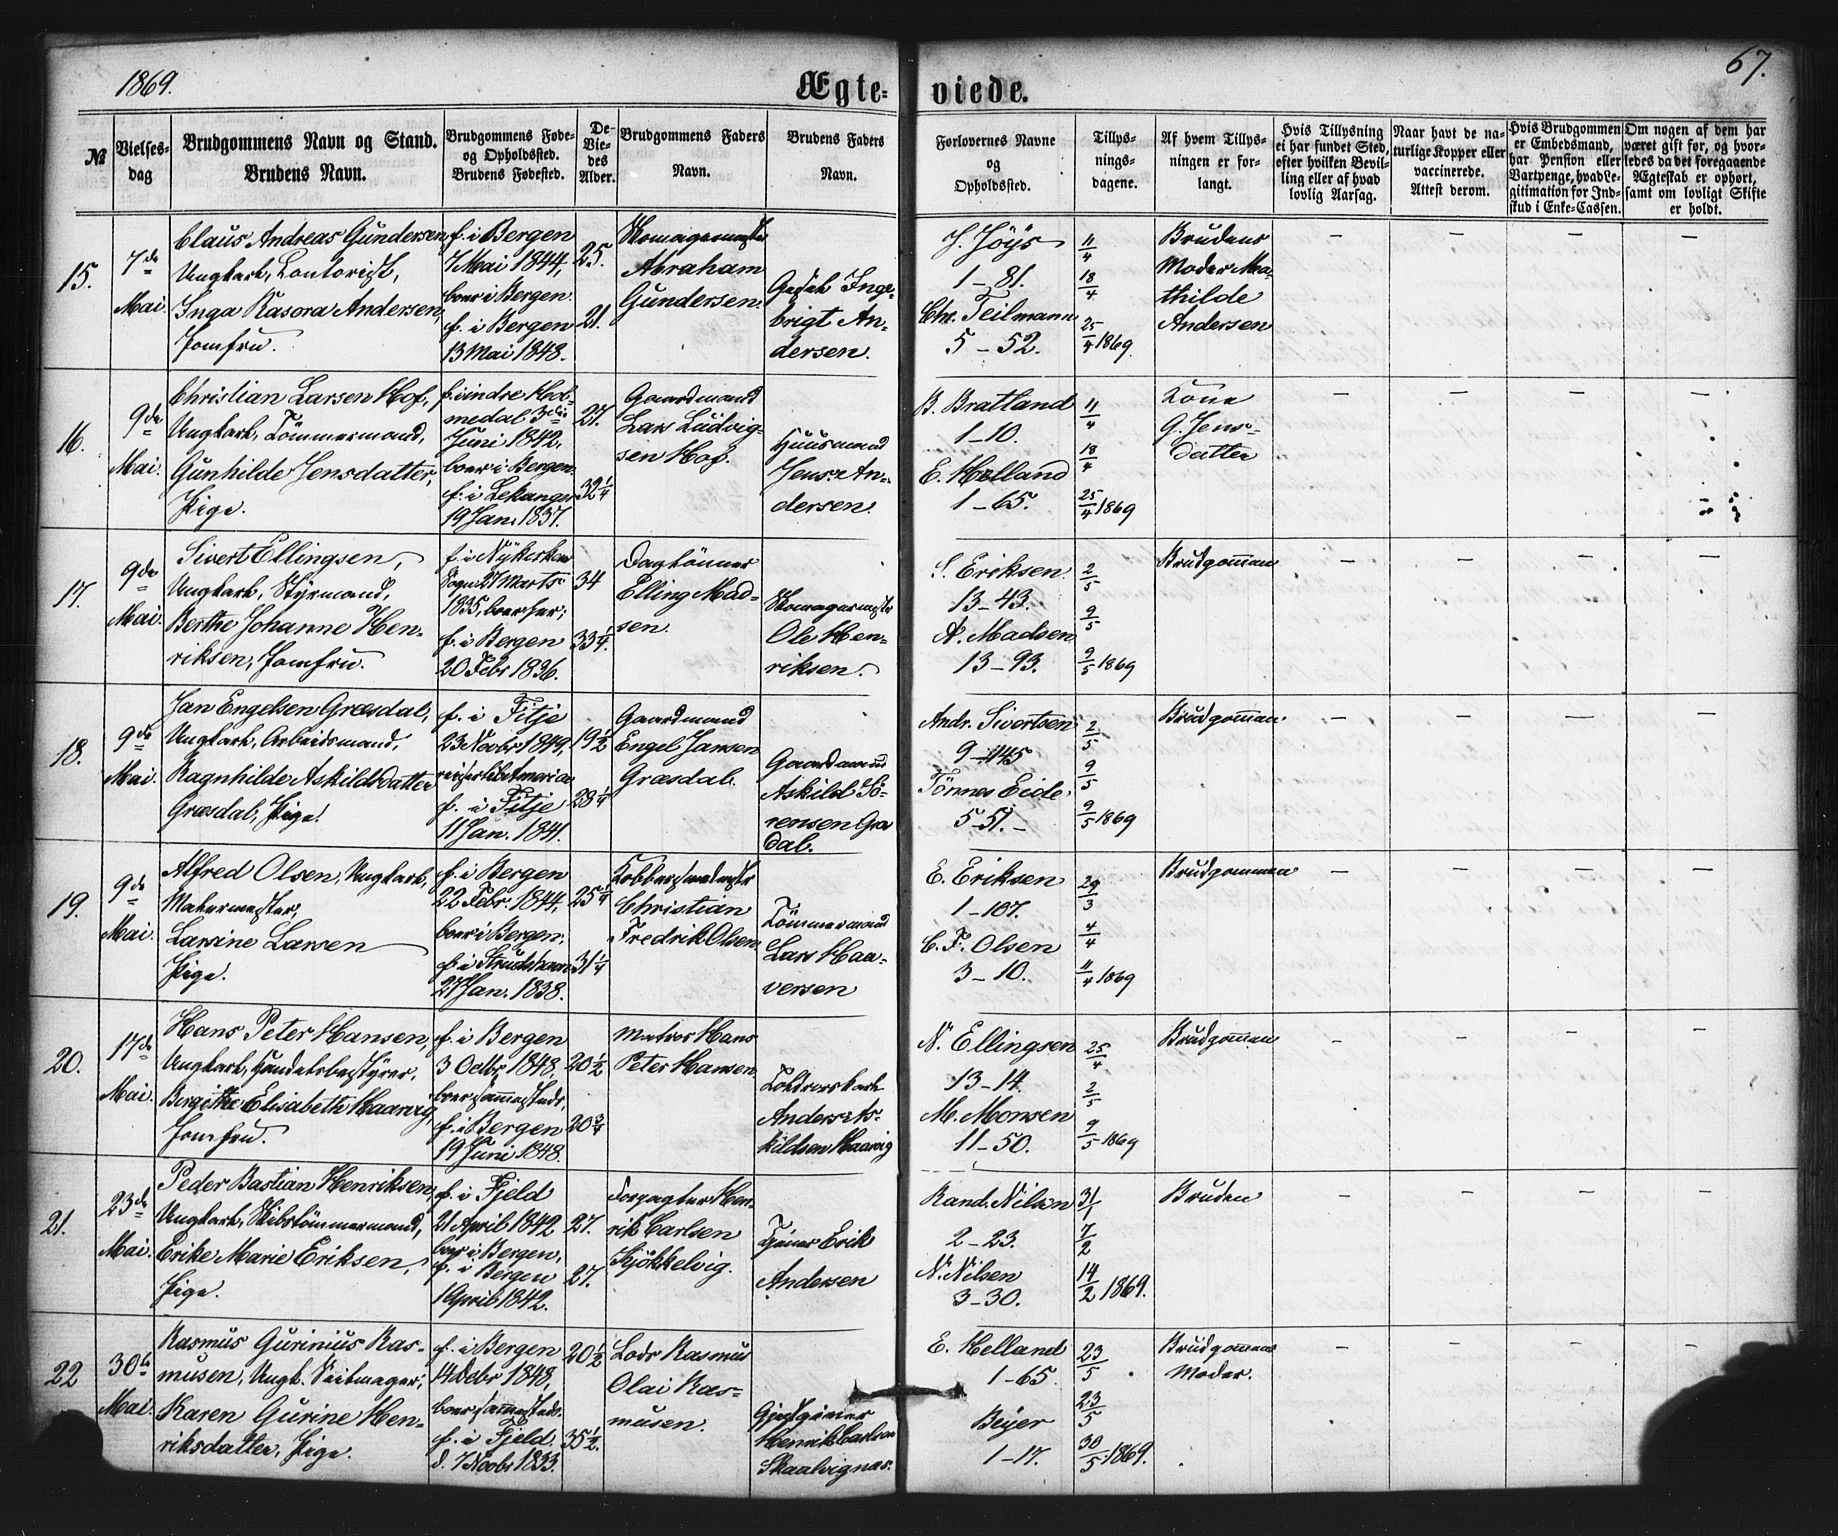 1869.
67.
Ægte-
viede.
№
Vielses-
dag
Brudgommens Navn og Stand.
Brudens Navn.
Brudgommens Føde-
og Opholdssted.
Brudens Fødested.
De
Vie-
des
Alder.
Brudgommens Faders
Navn.
Brudens Faders
Navn.
Forlovernes Navne
og
Opholdssted.
Tillys-
nings-
dagene.
Af hvem Tillys-
ningen er for-
langt.
Hvis Tillysning
ei har fundet Sted,
efter hvilken Bevil-
ling eller af hvad
lovlig Aarsag.
Naar havt de na-
turlige Kopper eller
vaccinerede.
Attest derom.
Hvis Brudgommen
er Embedsmand,
har Pension eller
Vartpenge, hvad Le-
gitimation for Ind-
skud i Enke-Cassen.
Om nogen af dem har
været gift før, og hvor-
ledes da det foregaaende
Ægteskab er ophørt,
samt om lovligt Skifte
er holdt.
15.
7de
Mai.
Claus Andreas Gundersen
Ungkarl, Contorist,
Inga Rasora Andersen,
Jomfru.
f. i Bergen
7 Mai 1844,
boer i Bergen.
f. i Bergen
13 Mai 1848.
25.
21.
Skomagermester
Abraham
Gundersen.
Inge-
brigt An-
dersen.
J. Jöys
1-81.
Chr. Teilmann
5-52.
11/4
18/4
25/4 1869.
Brudens
Moder Ma-
thilde
Andersen
16.
9de
Mai.
Christian Larsen Hof,
Ungkarl, Tömmermand,
Gunhilde Jensdatter,
Pige.
f. i indre Hol-
medal 3die
Juni 1842,
boer i Bergen.
f. i Lekanger
19 Jan. 1837.
27.
32 1/4
Gaardmand
Lars Ludvig-
sen Hof.
Huusmand
Jens An-
dersen.
B. Bratland
1-10.
E. Helland
1-65.
11/4
18/4
25/4 1869
Kone
G. Jens-
datter
17.
9de
Mai.
Sivert Ellingsen,
Ungkarl, Styrmand,
Berthe Johanne Hen-
riksen, Jomfru.
f. i Nykirkens
Sogn 27 Marts
1835, boer her;
f. i Bergen
20 Febr 1836.
34
33 1/4.
Daglönner
Elling Mad-
sen.
Skomagermester
Ole Hen-
riksen.
S. Eriksen.
13-43.
A. Madsen
13-93.
2/5
9/5
9/5 1869
Brudgommen
18.
9de
Mai.
Jan Engelsen Græsdal,
Ungkarl, Arbeidsmand,
Ragnhilde Askildsdatter
Græsdal, Pige.
f. i Fitje
23 Novbr 1849,
reiser til Amerika
f. i Fitje
11 Jan. 1841.
19 1/2
28 1/4
Gaardmand
Engel Jansen
Græsdal.
Gaardmand
Askild Sö-
rensen Græ
dal.
Andr. Sivertsen
9-445
Tönnes Eide.
5-51.
2/5
9/5
9/5 1869
Brudgommen.
19.
9de
Mai.
Alfred Olsen, Ungkarl,
Malermester,
Lavine Larsen
Pige.
f. i Bergen
22 Febr. 1844,
boer i Bergen,
f. i
27 Jan. 1838.
25 1/4
31 1/4
Kobbersmedmestr
Christian
Fredrik Olsen
Tömmermand
Lars Haa-
versen
E. Eriksen
1-107.
C. F. Olsen
3-10.
29/3
4/4
11/4 1869
Brudgommen
20.
17de
Mai.
Hans Peter Hansen,
Ungkarl, Handelsbestyrer,
Bergithe Elisabeth Haavig,
Jomfru.
f. i Bergen
3 Octbr 1848.
boer sammesteds,
f. i Bergen
19 Juni 1848.
20 1/2
20 3/4
Matros Hans
Peter Hansen.
Anders As-
kildsen Haavig
N. Ellingsen
13-14.
M. Monsen
11-50.
25/4
2/5
9/5 1869
Brudgommen
21.
23de
Mai.
Peder Bastian Henriksen,
Ungkarl, Skibstömmermand,
Erike Marie Eriksen,
Pige.
f. i Fjeld
21 April 1842
boer i Bergen,
f. i Bergen
1 April 1842.
27.
27.
Forpagter Hen-
rik Carlsen
Kjökkelvig.
Tjener Erik
Andersen
Rand. Nilsen
2-23.
N. Nilsen
3-30.
31/1
7/2
14/2 1869.
Bruden
22
30te
Mai.
Rasmus Gurinius Ras-
musen, Ungk. Seilmager;
Karen Gurine Hen-
riksdatter, Pige.
f. i Bergen
14 Decbr 1848,
boer sammesteds.
f. i Fjeld.
d. 7 Novbr 1833.
20 1/2
35 1/2.
Lods Rasmus
Olai Ras-
musen.
Gjestgiver
Henrik Carlsen
Skaalvignæs.
E. Helland
1-65.
Beyer
1-17.
23/5
23/5
30/5 1869.
Brudgommens
Moder.